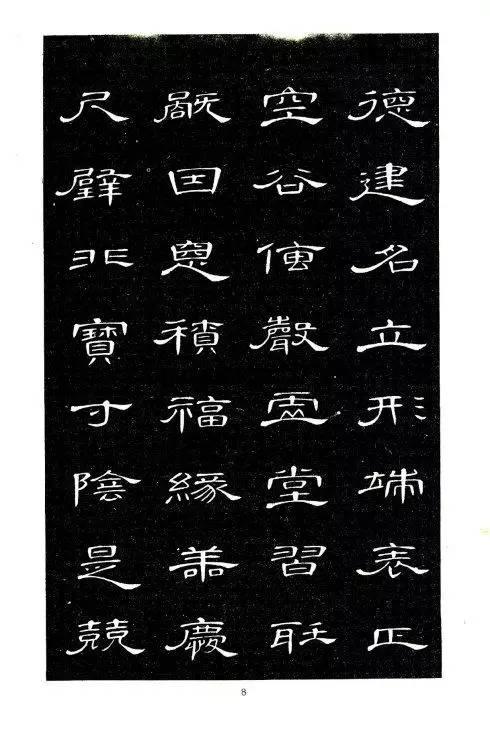 德建名立形端表正
空谷傳聲虛堂習聽
禍因惡積福緣善慶
尺璧非寶寸陰是競
8